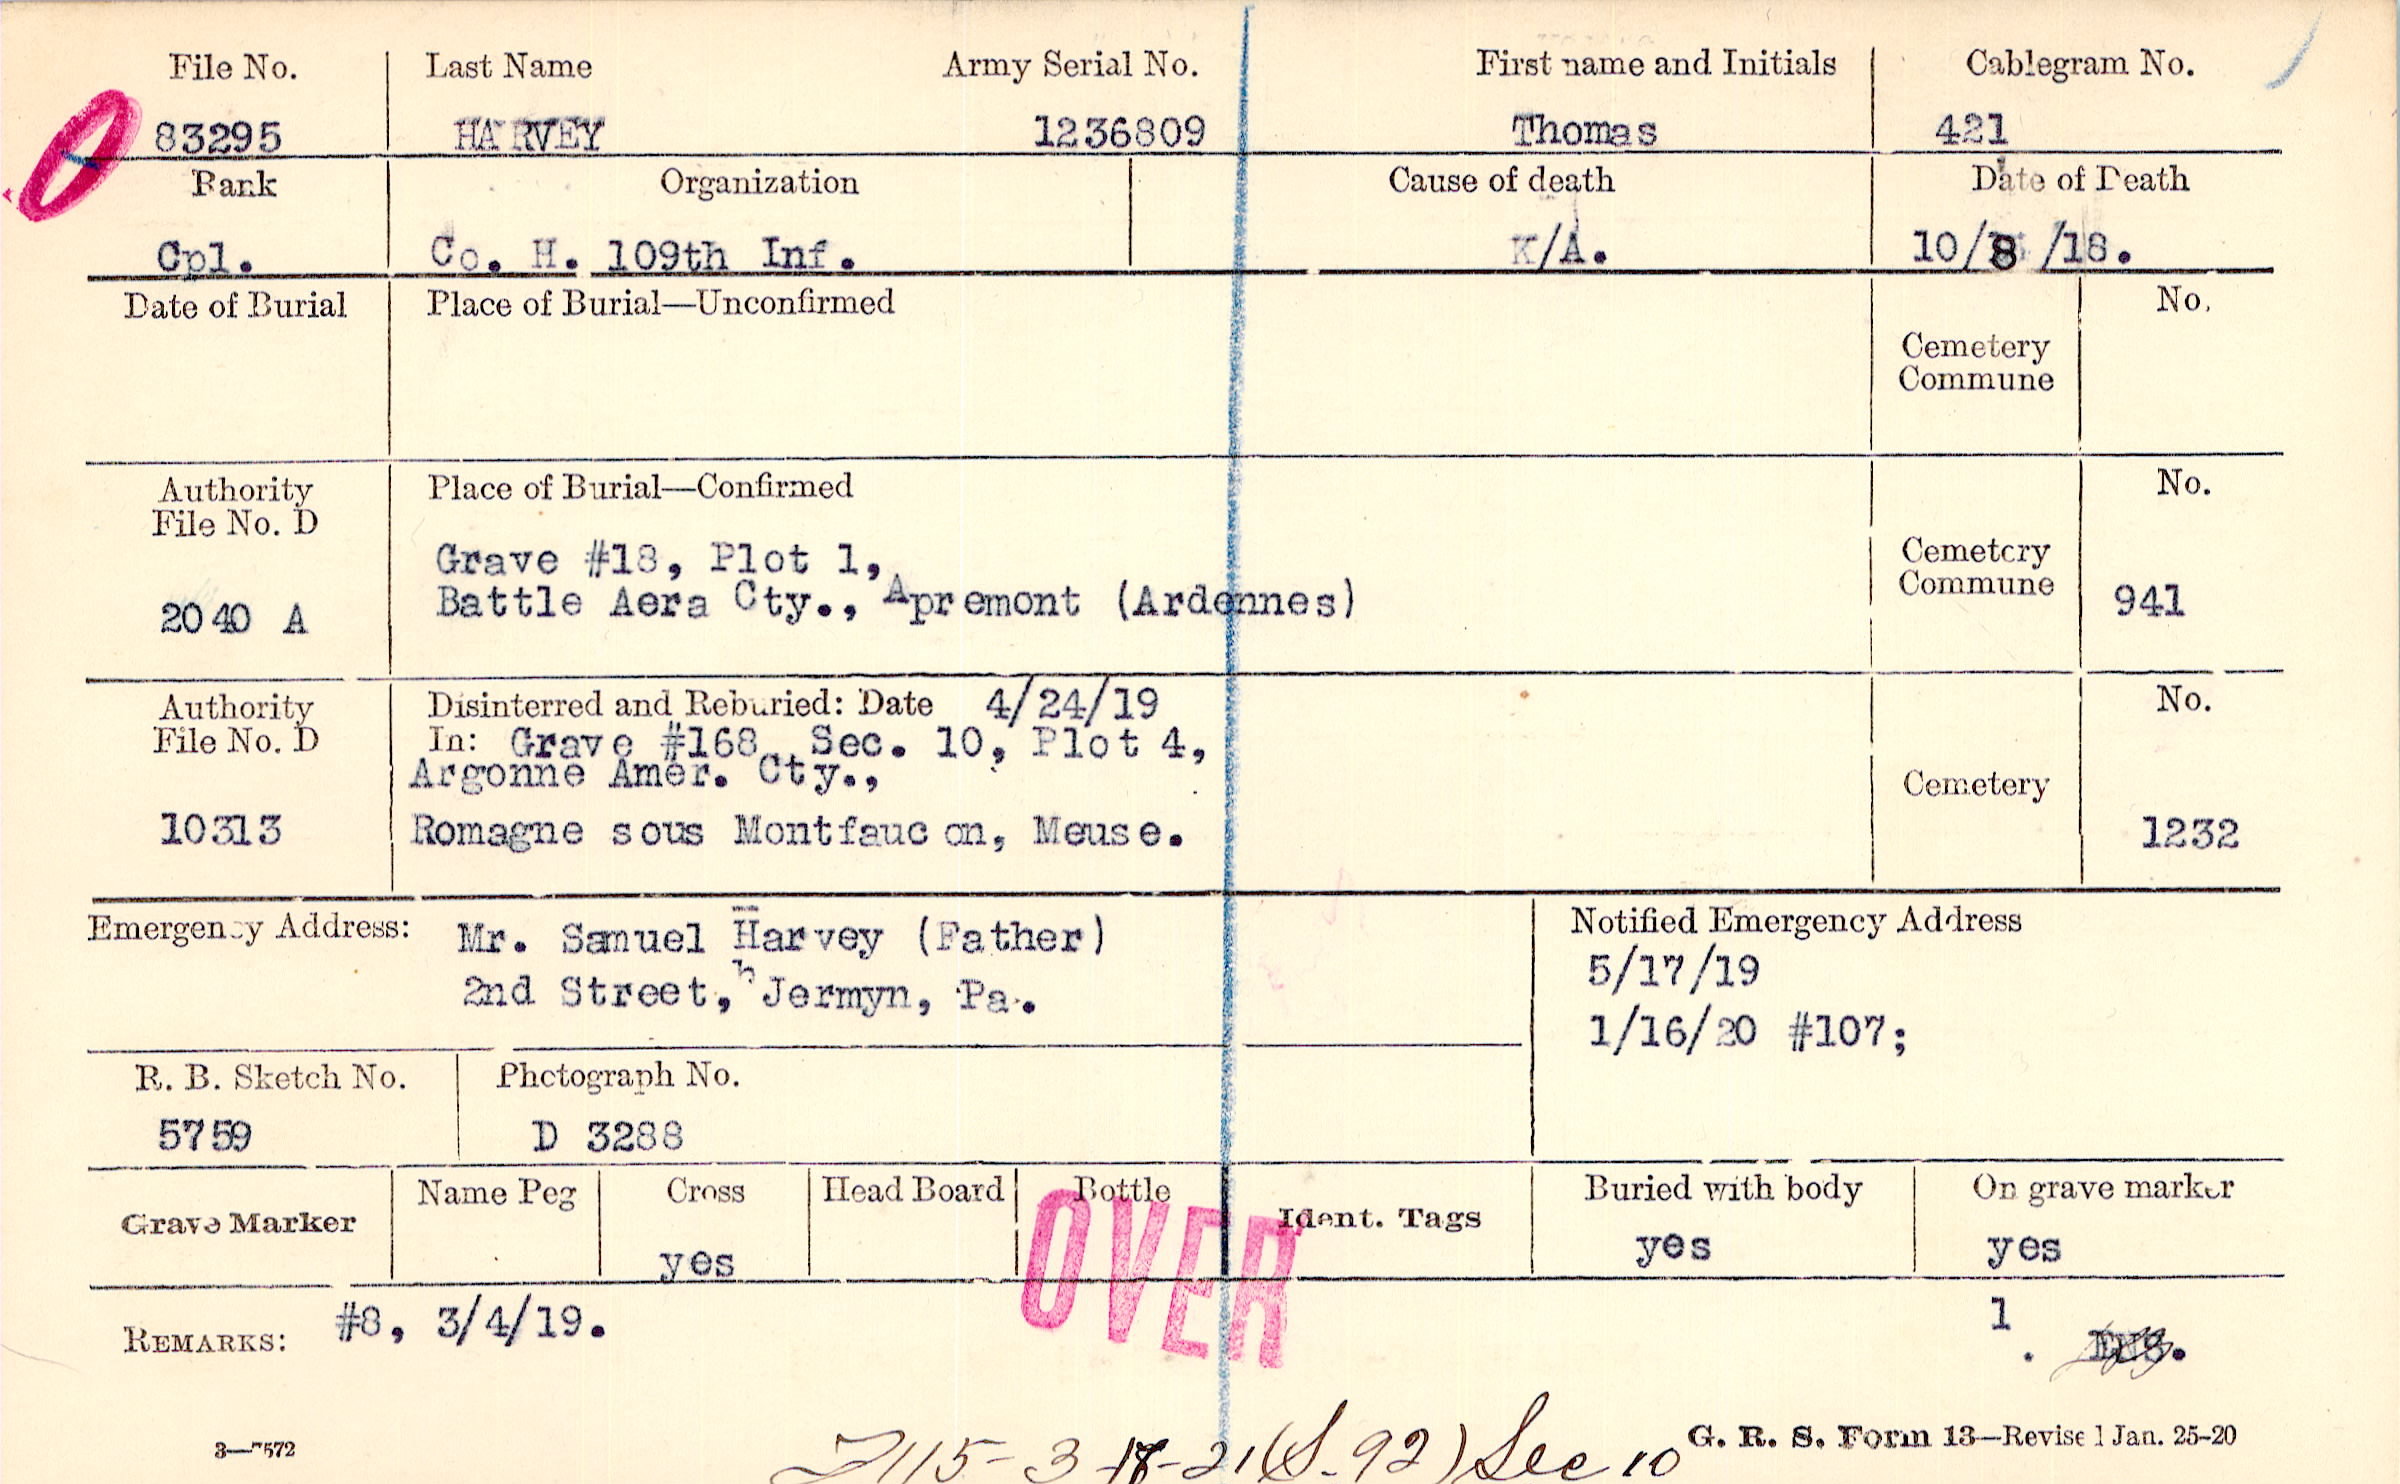 File No. Last Name Army Serial No. First name and Initials Cablegram No.
83295 HARVEY 1236809 Thomas 421
Rank Organization Cause of death Date of Death
Cpl. Co. H. 109th Inf. K/A. 10/8 /18.
Date of Burial Place of Burial—Unconfirmed No.
Cemetery
Commune
Authority Place of Burial—Confirmed No.
File No. D
Grave #18, Plot 1,
Cemetery
Commune
2040 A Battle Aera Cty., Apremont (Ardennes) 941
Authority Disinterred and Reburied: Date 4/24/19 No.
File No. D In: Grave #168 Sec. 10, Plot 4,
Argonne Amer. Cty.,
Cemetery
10313 Romagne sous Montfaucon, Meuse. 1232
Emergency Address: Mr. Samuel Harvey (Father) Notified Emergency Address
5/17/19
2nd Street, Jermyn, Pa.
1/16/20 #107;
R. B. Sketch No. Photograph No.
5759 D 3288
Grave Marker Name Peg Cross Head Board Bottle Ident. Tags Buried with body On grave marker
yes yes yes
OVER
REMARKS: #8, 3/4/19. 1
3—7572 115-3-18-21 (S-92) Sec 10 G. R. S. Form 13—Revised Jan. 25-20